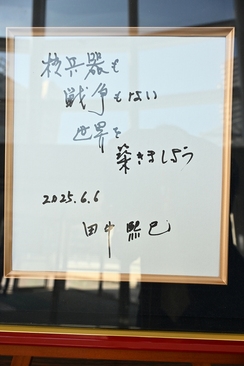 核兵器も
戦争もない
世界を
築きましょう
2025.6.6
田中熙巳